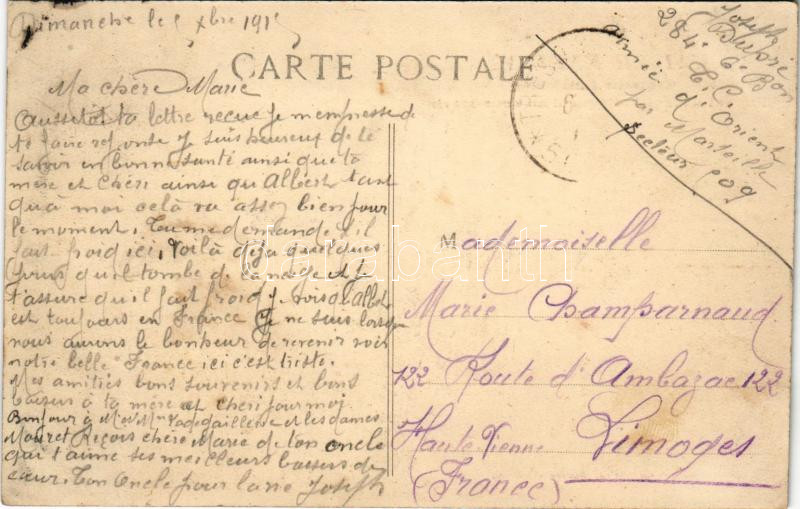 Dimanche le 5 Xbre 1915
CARTE POSTALE
Ma chère Marie
Aussetot ta lettre recue je m'empresse de
te faire reponse je suis heureux de le
savoir en bonne santé ainsi que ta
mère et Chéri ainsi qu'Albert tant
qu'à moi celà va assez bien pour
le moment. Tu me demande s'il
fait froid ici, voilà déja quelques
jours qu'il tombe de la neige et je
t'assure qu'il fait froid je vois qu'Albert
est toujours en France je ne sais lorsque
nous aurons le bonheur de revenir voir
notre belle France ici c'est triste.
Mes amitiés bons souvenirs et bons
baisers à ta mère et chéri pour moi
Bonjour à Mr et Mme et les dames
Mouret Reçois chère Marie de ton oncle
qui t'aime ses meilleurs baisers du
cœur. Ton Oncle pour la vie Joseph
Joseph
Dupré
284e 6e Bon
T. C.
armée d'Orient
par Marseille
Secteur 509
Mademoiselle
Marie Champarnaud
122 Route d'Ambazac 122
Haute Vienne Limoges
(France)
darabanth